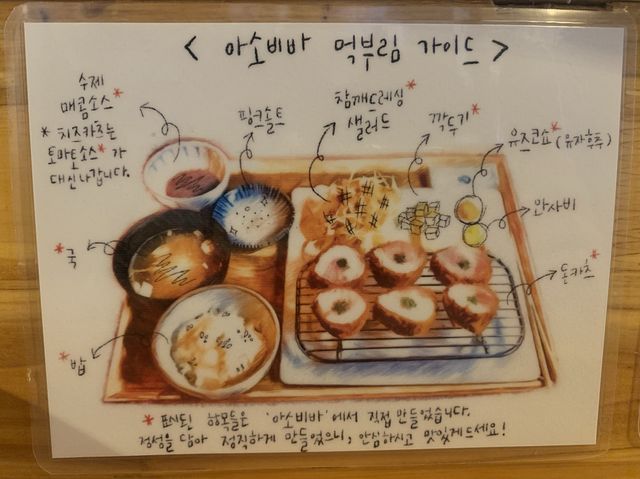 < 아소비바 먹부림 가이드 >
수제
매콤소스*
* 치즈카츠는
토마토소스* 가
대신나갑니다.
핑크솔트
참깨드레싱*
샐러드
깍두기*
유즈코쇼* (유자후추)
와사비
*국
돈카츠*
*밥
* 표시된 항목들은 '아소비바' 에서 직접 만들었습니다.
정성을 담아 정직하게 만들었으니, 안심하시고 맛있게드세요!